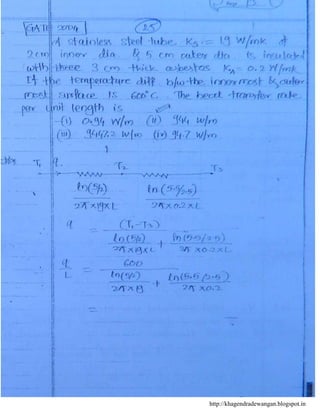 GATE 2004 (25)
A stainless steel tube Ks = 19 W/mk of
2cm inner dia & 5 cm outer dia is insulated
with three 3 cm thick asbestos Ka 0.2 W/mk
If the temperature diff b/w the innermost & outer
most surface is 600°C. The heat transfer rate
per unit length is
(i) 0.94 W/m (ii) 944 W/m
(iii) 9447.2 W/m (iv) 94.7 W/m
T₁ q. T₂ T₃
ln(5/2) / 2π×19×L ln(5.5/2.5) / 2π×0.2×L
q = (T₁-T₃) / ln(5/2) / 2π×19×L + ln(5.5/2.5) / 2π×0.2×L
q/L = 600 / ln(5/2) / 2π×19 + ln(5.5/2.5) / 2π×0.2
=
http://khagendradewangan.blogspot.in